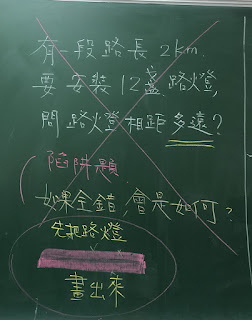 有一段路長2km.
要安裝12盞路燈,
問路燈相距多遠?
陷阱題
如果全錯,會是如何?
先把路燈
畫出來